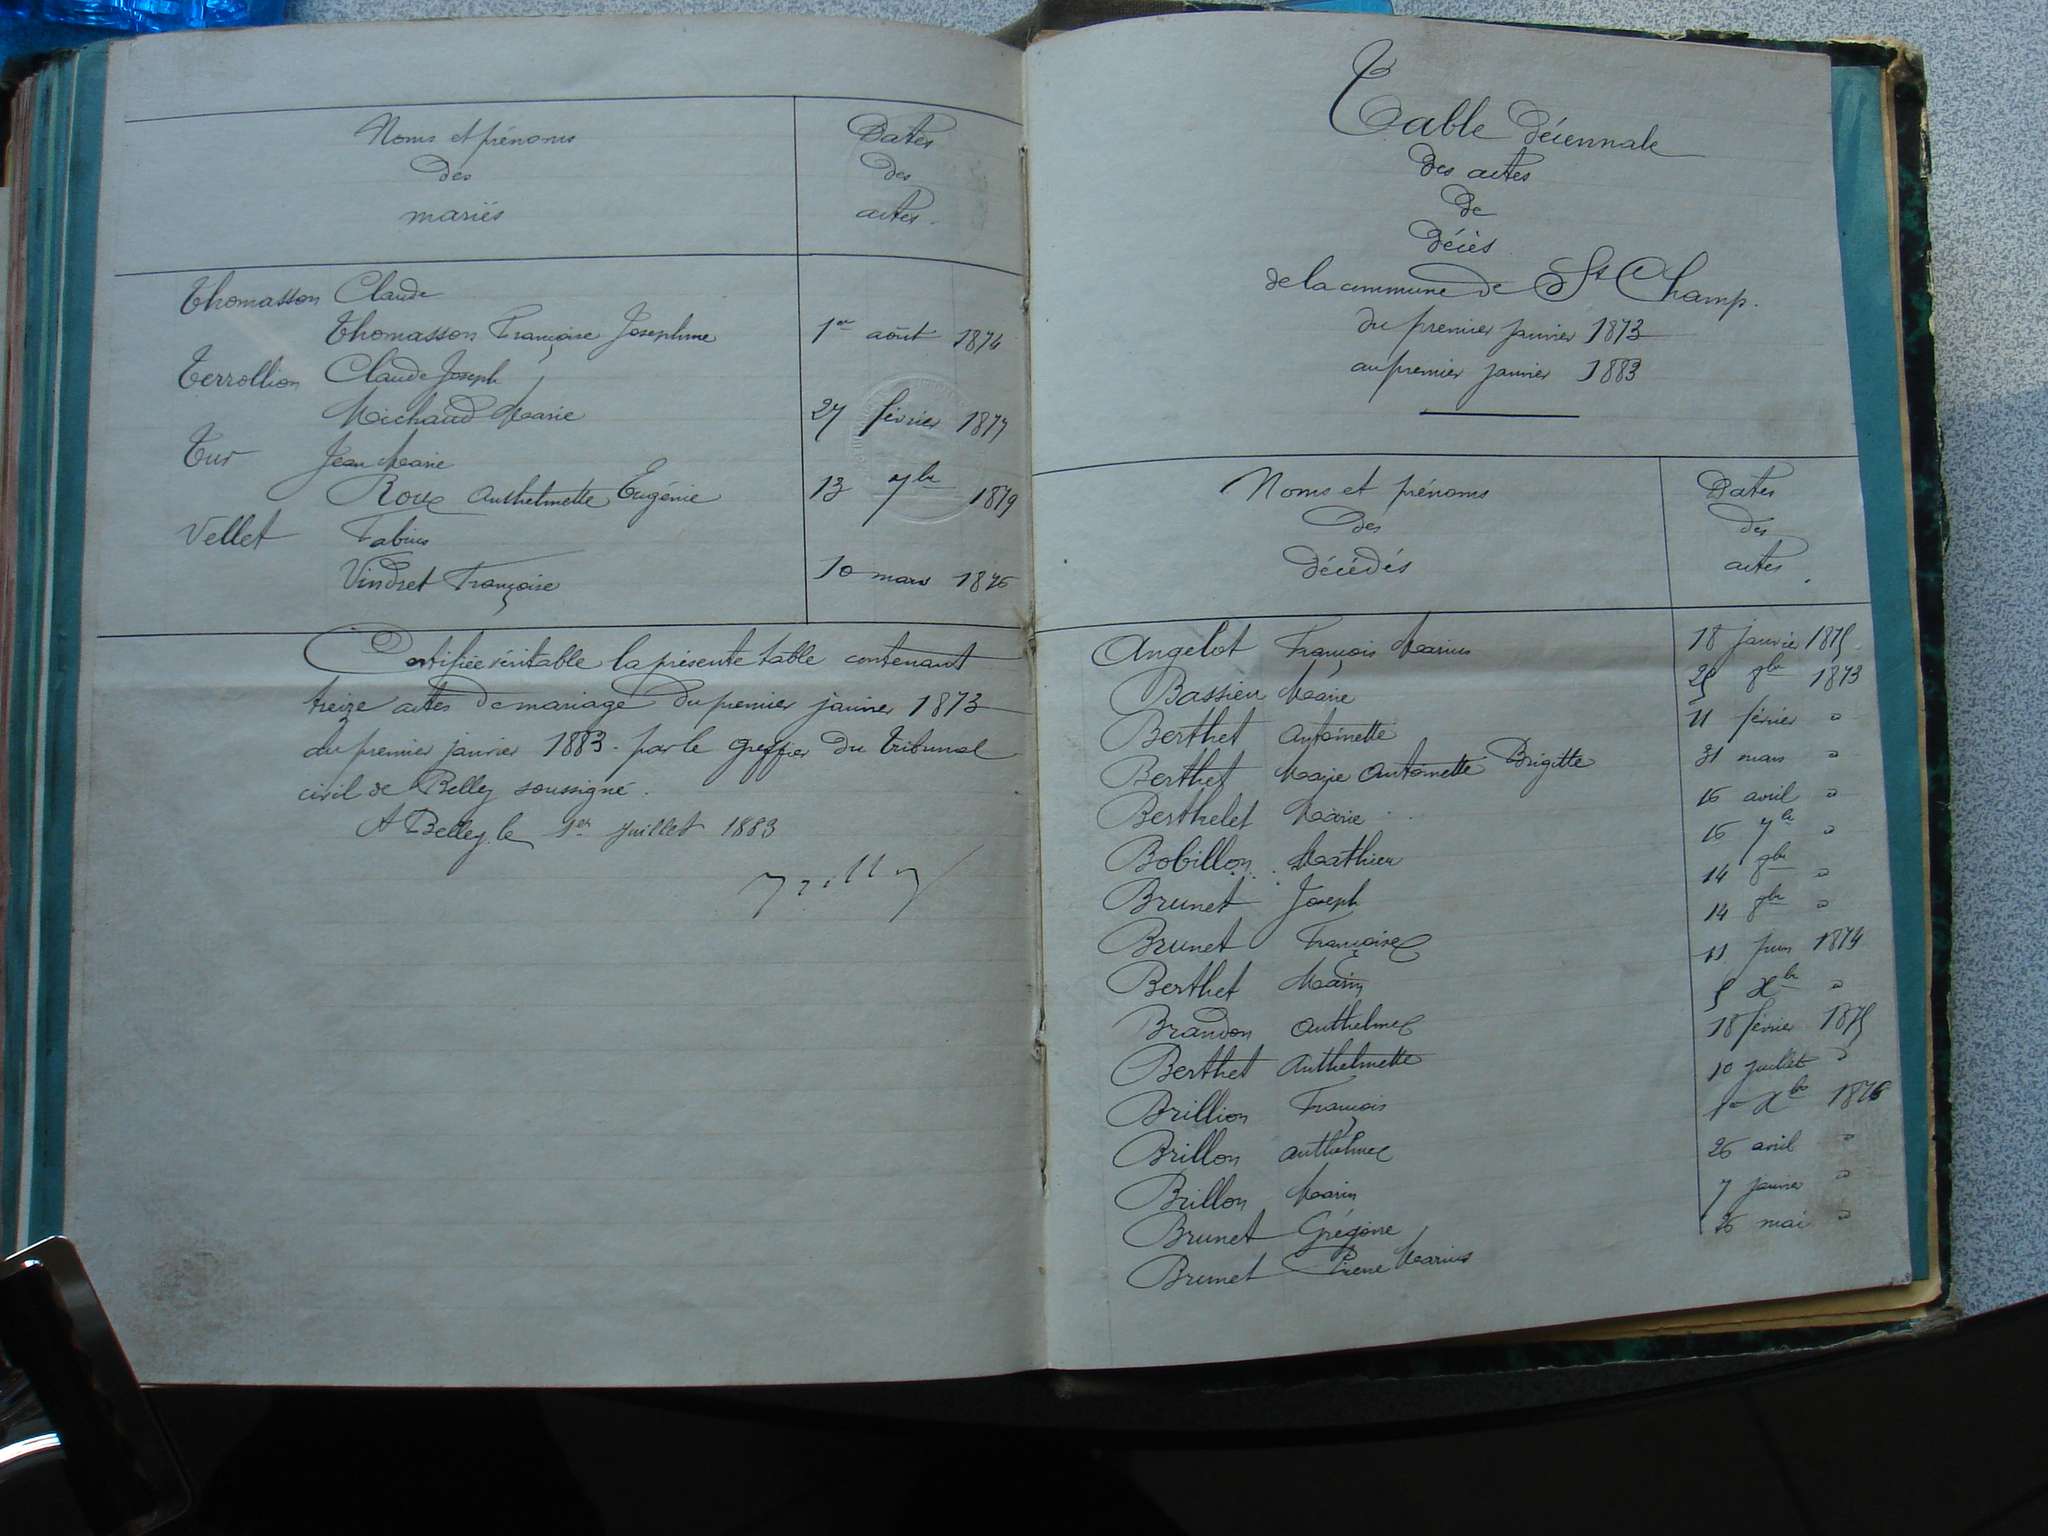 Noms et prénoms
des
mariés
Dates
des
actes.
Thomasson Claude
Thomasson Françoise Josephine 1er août 1874
Terrollion Claude Joseph
Michaud Marie 27 février 1877
Tur Jean Marie
Roux Anthelmette Eugénie 13 7bre 1879
Vellet Fabius
Vindret Françoise 10 mars 1876
Certifiée véritable la présente table contenant
treize actes de mariage du premier janvier 1873
au premier janvier 1883. par le greffier du tribunal
civil de Belley soussigné.
A Belley, le 1er juillet 1883
Table décennale
des actes
de
décès
de la commune de St Champ.
du premier janvier 1873
au premier janvier 1883
Noms et prénoms
des
décédés
Dates
des
actes.
Angelot François Marius 18 janvier 1875.
Bassieu Marie 25 8bre 1873
Berthet Antoinette 11 février "
Berthet Marie Antoinette Brigitte 31 mars "
Berthelet Marie 16 avril "
Bobillon Mathieu 16 7bre "
Brunet Joseph 14 8bre "
Brunet Françoise 14 8bre "
Berthet Marin 11 juin 1874
Brandon Anthelme 5 Xbre "
Berthet Anthelmette 18 février 1875
Brillion François 10 juillet "
Brillon Anthelme 1er Xbre 1876
Brillon Marin 26 avril "
Brunet Grégoire 7 janvier "
Brunet Pierre Marius 26 mai "